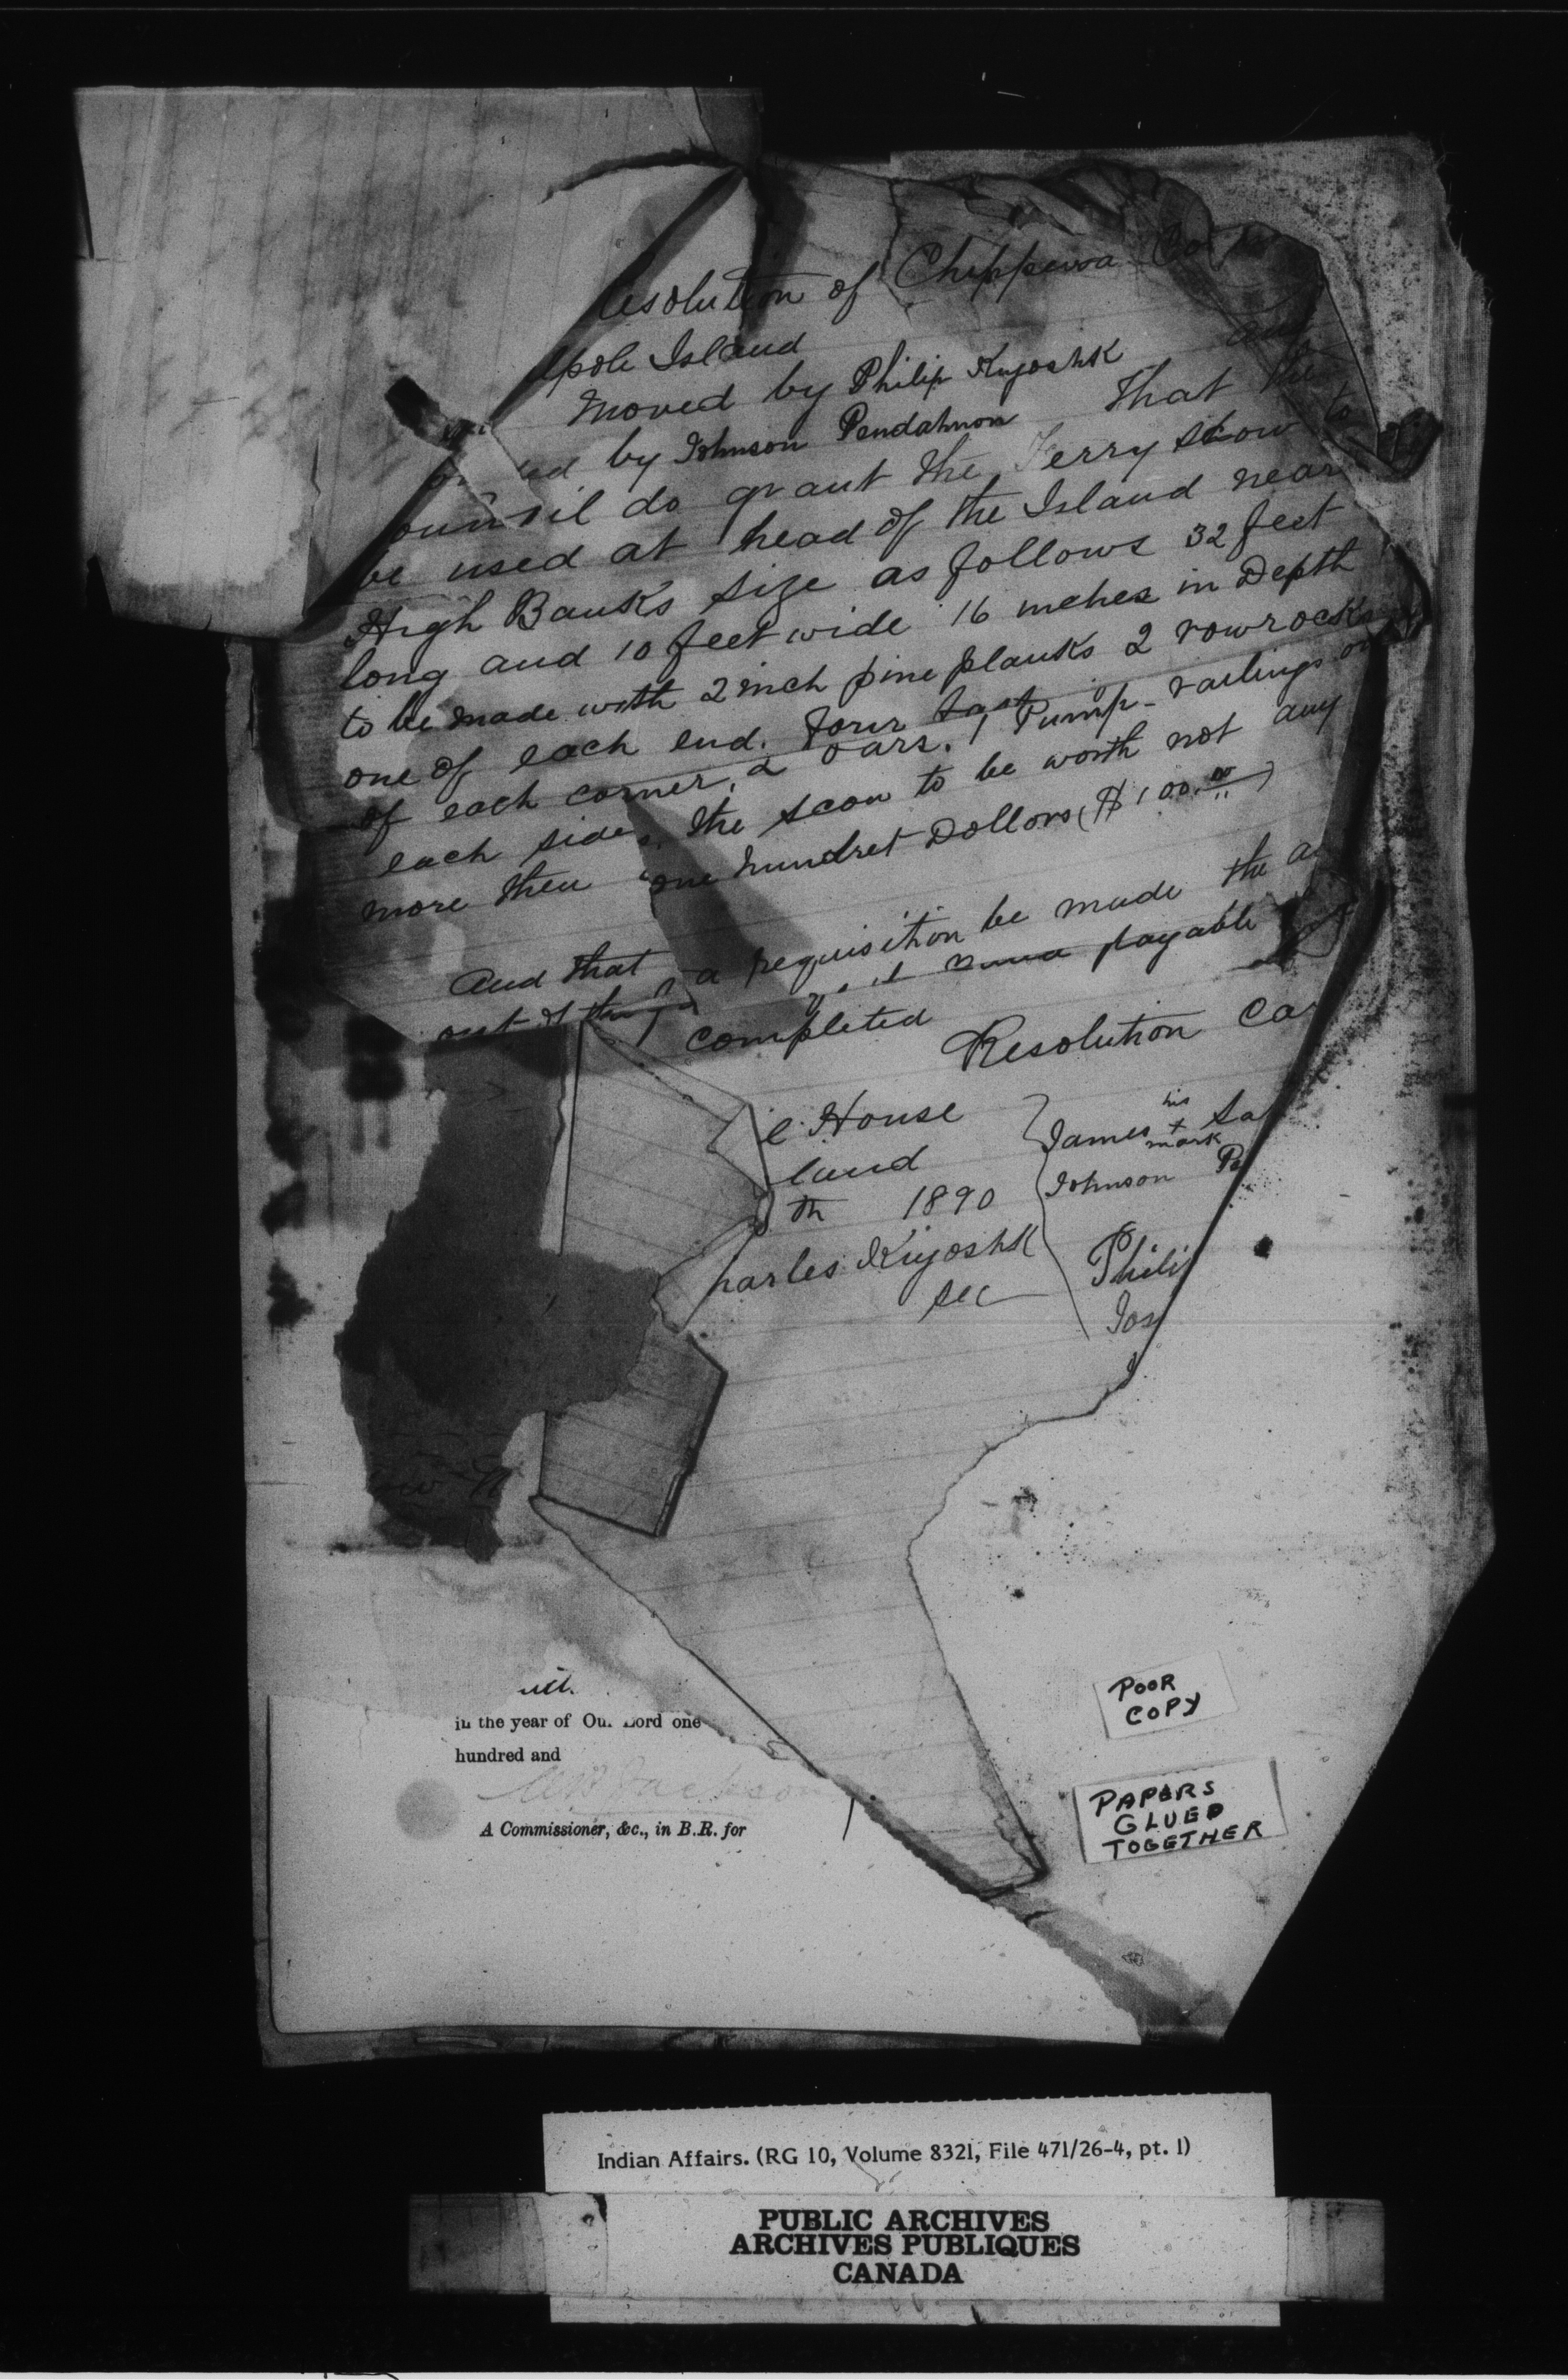 esolution of Chippewa Co
pole Island
Moved by Philip Kiyoshk and
ded by Johnson Pendahnon That the
ouncil do grant the Ferry scow to
be used at head of the Island near
High Banks size as follows 32 feet
long and 10 feet wide 16 inches in Depth
to be made with 2 inch pine planks 2 rowrocks
one of each end. four
of each corner, 2 oars. 1 Pump - railings on
each side, the scow to be worth not any
more then one hundret Dollors ($100.00)
And that a requisition be made the a
out of the payable
completed
Resolution Ca
e House
land
th 1890
harles Kiyoshk
sec
James his x mark Sa
Johnson Pe
Philip
Jos
in the year of Our Lord one
hundred and
A Commissioner, &c., in B.R. for
POOR
COPY
PAPERS
GLUED
TOGETHER
Indian Affairs. (RG 10, Volume 8321, File 471/26-4, pt. 1)
PUBLIC ARCHIVES
ARCHIVES PUBLIQUES
CANADA